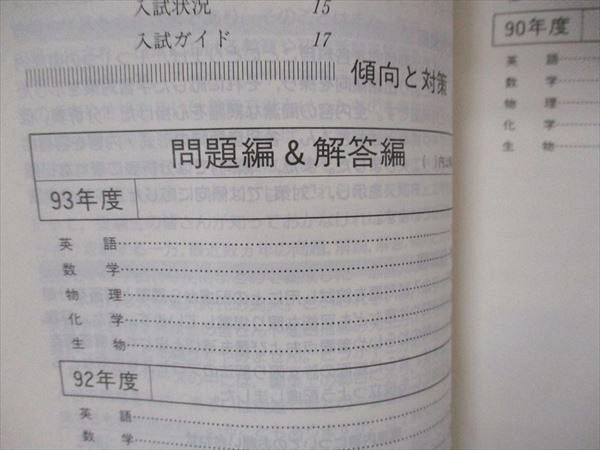 入試状況 15
入試ガイド 17
傾向と対策
問題編 & 解答編
93年度
英語
数学
物理
化学
生物
92年度
英語
数学
90年度
英語
数学
物理
化学
生物